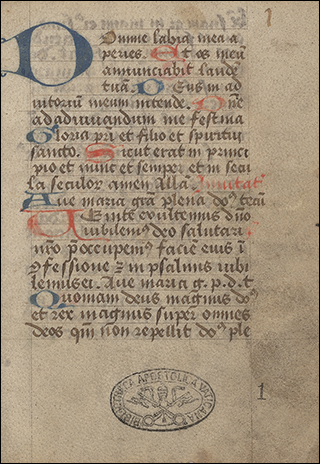 Domine labia mea a
peries. Et os meū
annunciabit laudē
tuā. Deus in ad
iutorium meum intende. Dn̄e
ad adiuuandum me festina
Gloria pr̄i et filio et spiritui
sancto. Sicut erat in princi
pio et nunc et semper et in secu
la seculor amen. Alla. Inuitat'
Aue maria gr̄a plena dn̄s tecū
Uenite exultemus dn̄o
iubilemus deo salutari
nr̄o p̄occupemus faciē eius ī
ꝯfessione ⁊ in psalmis iubi
lemus ei. Aue maria g. p. d. t
Quoniam deus magnus dn̄s
et rex magnus super omnes
deos qm̄ non repellit dn̄s ple
BIBLIOTHECA APOSTOLICA VATICANA
1